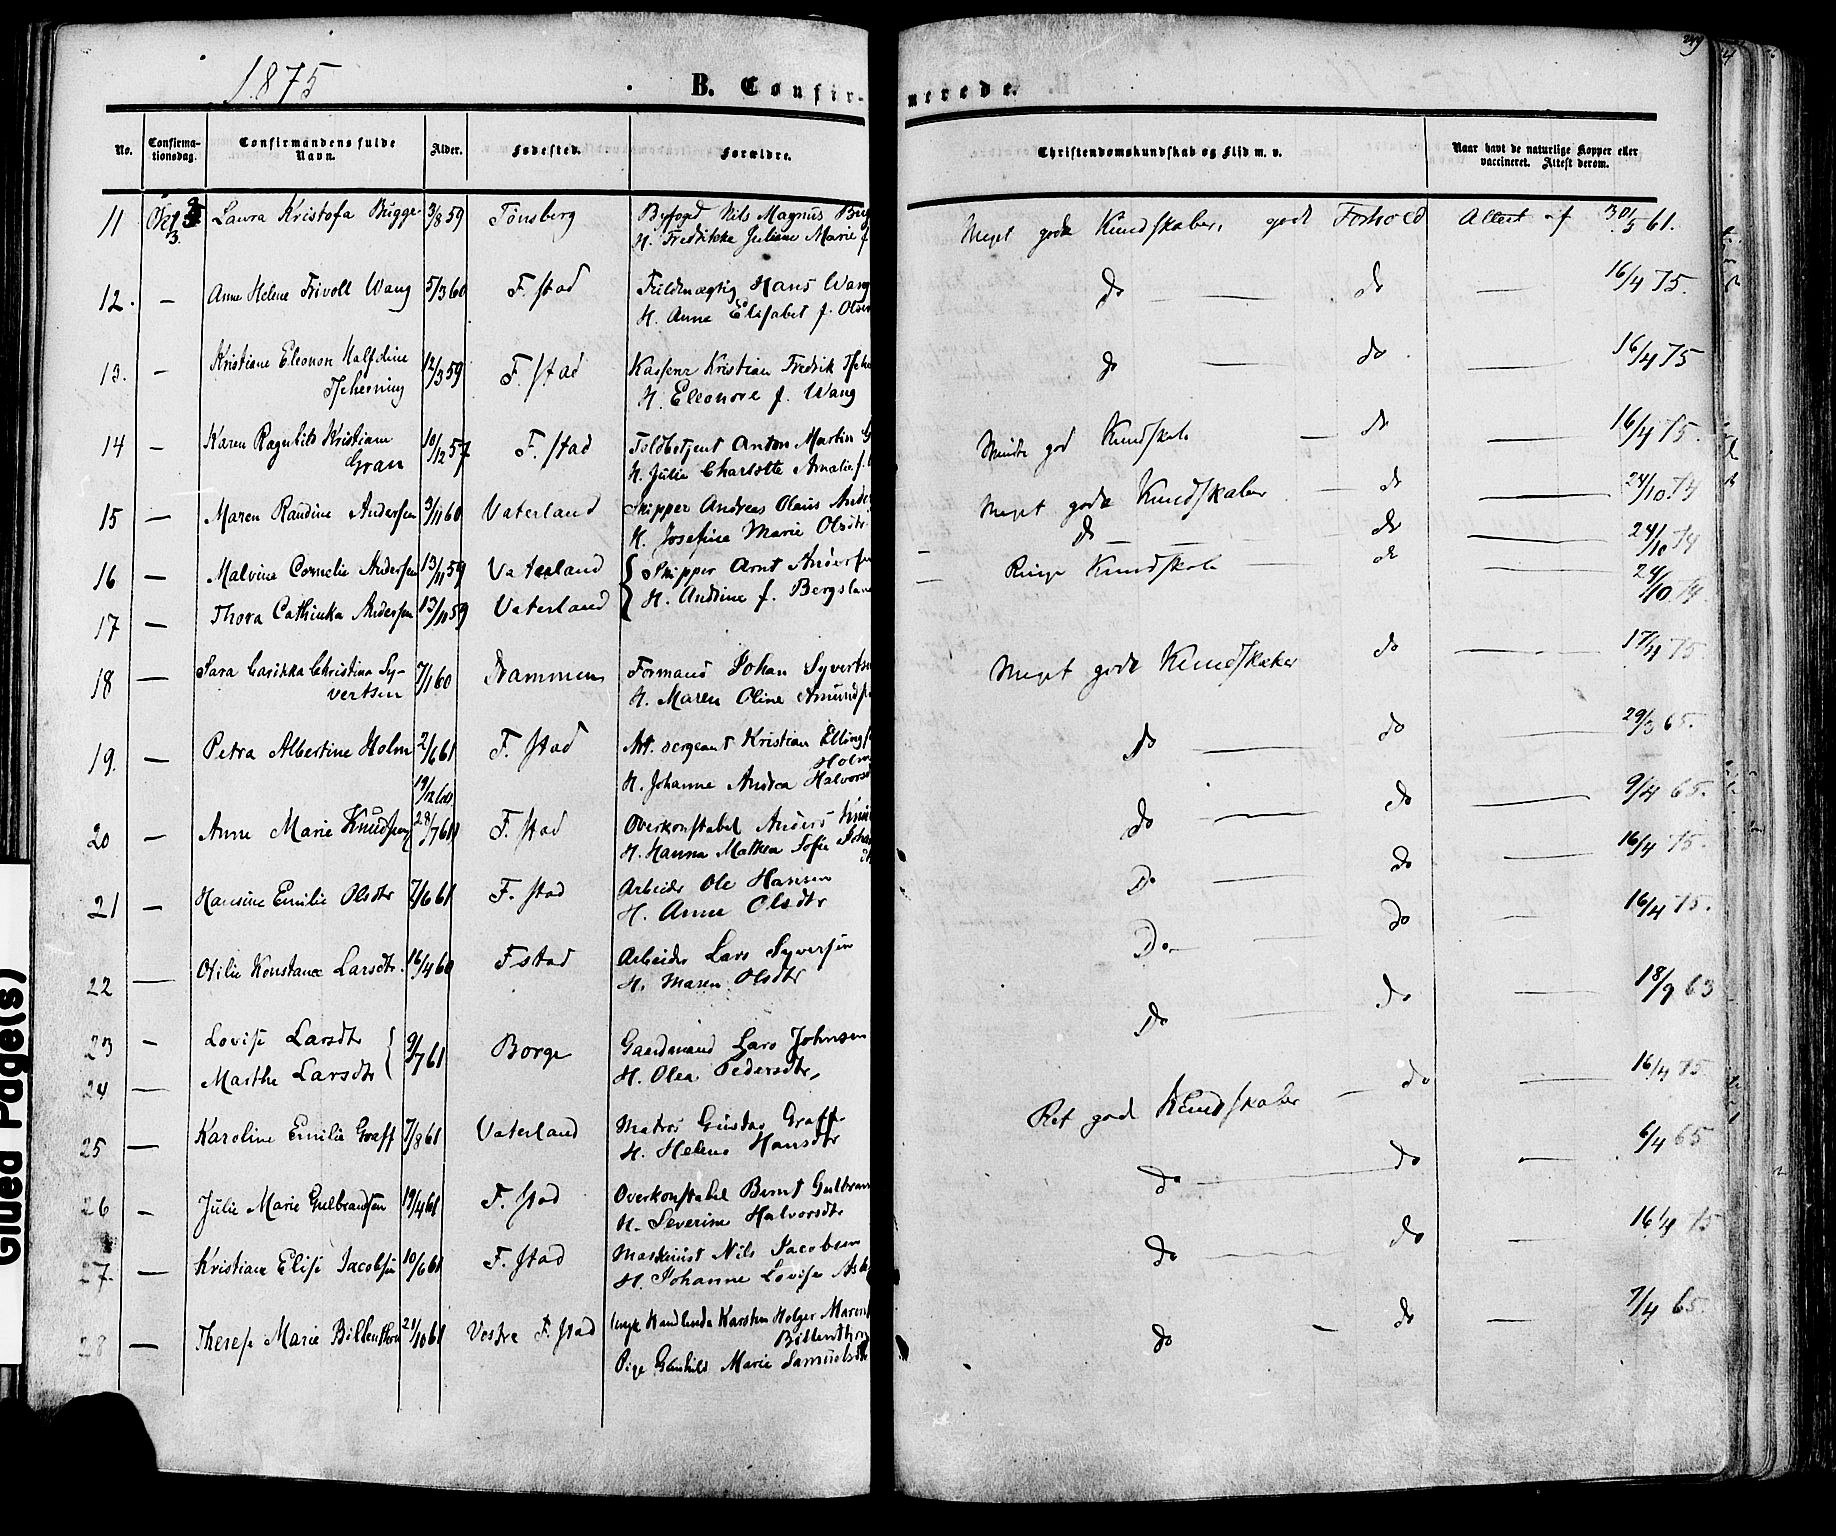 1875
B. Confirmerede.
249
No.
Confirmationsdag.
Confirmandens fulde Navn.
Alder.
Fødested.
Forældre.
Christendomskundskab og Flid m. v.
Naar havt de naturlige Kopper eller vaccineret. Attest derom.
11 Laura Kristofa Bugge 3/8 59 Tønsberg Byfoged Nils Magnus Bug
H. Fredrikke Juliane Marie f. Meget gode Kundskaber, godt Forhold Attest af 30/5 61.
12. — Anne Helene Frivoll Wang 5/3 60 F. stad Fuldmægtig Hans Wang
H. Anne Elisabet f. Olsen do — do — 16/4 75.
13. — Kristiane Eleonor Halfdine
Tscherning 12/3 59 F. stad Kasserer Kristian Fredrik Tsche
H. Eleonore f. Wang do — do — 16/4 75
14 — Karen Ragnhild Kristiane
Gran 10/12 57 F. stad Toldbetjent Anton Martin G
H. Julie Charlotte Amalie f. Mindre god Kundskab — do — 16/4 75.
15 — Maren Randine Andersen 3/11 60 Vaterland Skipper Andreas Olaus Ander
H. Josefine Marie Olsdtr Meget gode Kundskaber — do — 24/10 74
16 — Malvine Cornelie Andersen 13/11 59 Vaterland Skipper Arnt Andersen
H. Andrine f. Bergsland do — do — 24/10 74
17 — Thora Cathinka Andersen 13/11 59 Vaterland Ringe Kundskab — do — 24/10 74.
18 — Sara Christina Sy-
vertsen 7/1 60 Drammen Formand Johan Syvertsen
H. Maren Oline Amunds Meget gode Kundskaber do — 17/4 75
19. — Petra Albertine Holm 2/6 61 F. stad Art. sergeant Kristian Ellings
Holm
H. Johanne Andrea Halvorsd do — do — 29/3 65.
20 — Anne Marie Knudsen 28/7 61 F. stad Overkonstabel Anders Knud
H. Hanna Mathea Sofie Johan do — do — 9/4 65.
21 — Hansine Emilie Olsdtr 7/6 61 F. stad Arbeider Ole Hansen
H. Anne Olsdtr Do — do — 16/4 75.
22 — Otilie Konstance Larsdtr. 16/4 60 Fstad Arbeider Lars Syversen
H. Maren Olsdtr Do — do — 16/4 75.
23 — Lovise Larsdtr
24 — Marthe Larsdtr 9/7 61 Borge Gaardmand Lars Johnsen
H. Olea Pedersdtr, do do — 18/9 63
25 — Karoline Emilie Graff 7/8 61 Vaterland Matros Gustav Graff
H. Helene Hansdtr Ret god Kundskaber — do — 16/4 75
26 — Julie Marie Gulbrandsen 19/4 61 F. stad Overkonstabel Bernt Gulbran
H. Severine Halvorsdtr do — do — 6/4 65
27. — Kristiane Elise Jacobsen 10/6 61 F. stad Maskinist Nils Jacobsen
H. Johanne Lovise do — do — 16/4 75
28 — Therese Marie Billenthon 21/10 61 Vestre F. stad Handlende Karsten Holger
Billenthon
Pige Gunhild Marie Samuelsdtr do — do — 7/4 65.
Glued Page(s)